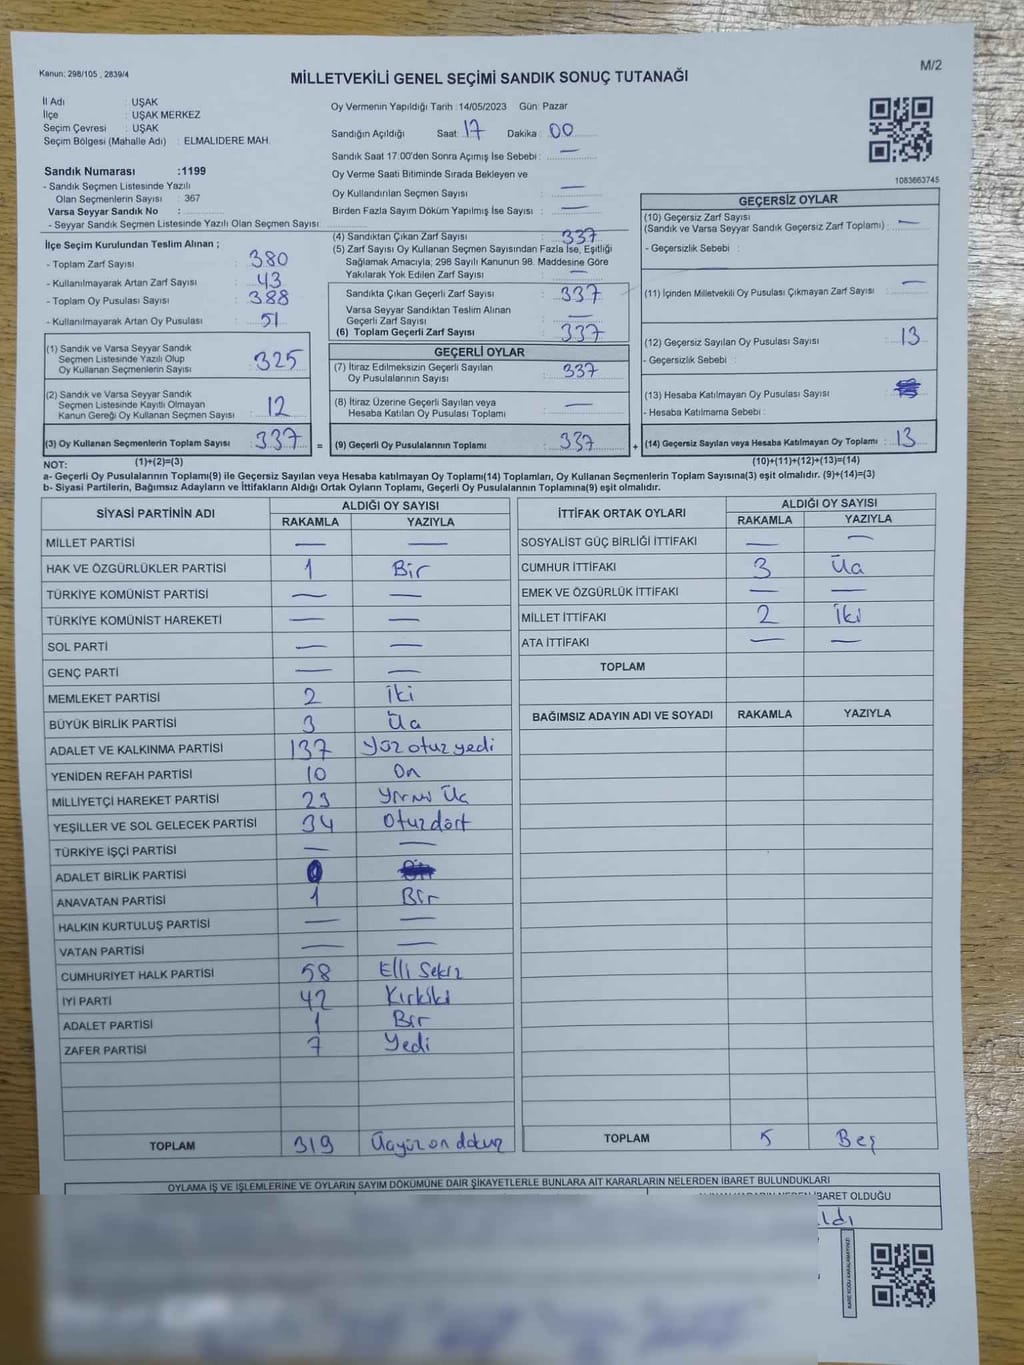 Kanun: 298/105 , 2839/4
M/2
MİLLETVEKİLİ GENEL SEÇİMİ SANDIK SONUÇ TUTANAĞI
İl Adı : UŞAK
İlçe : UŞAK MERKEZ
Seçim Çevresi : UŞAK
Seçim Bölgesi (Mahalle Adı) : ELMALIDERE MAH.
Sandık Numarası :1199
- Sandık Seçmen Listesinde Yazılı
Olan Seçmenlerin Sayısı : 367
Varsa Seyyar Sandık No :
- Seyyar Sandık Seçmen Listesinde Yazılı Olan Seçmen Sayısı
Oy Vermenin Yapıldığı Tarih :14/05/2023 Gün: Pazar
Sandığın Açıldığı Saat: 17 Dakika : 00
Sandık Saat 17:00'den Sonra Açımış İse Sebebi : —
Oy Verme Saati Bitiminde Sırada Bekleyen ve
Oy Kullandırılan Seçmen Sayısı : —
Birden Fazla Sayım Döküm Yapılmış İse Sayısı : —
1083663745
İlçe Seçim Kurulundan Teslim Alınan ;
- Toplam Zarf Sayısı : 380
- Kullanılmayarak Artan Zarf Sayısı : 43
- Toplam Oy Pusulası Sayısı : 388
- Kullanılmayarak Artan Oy Pusulası : 51
(1) Sandık ve Varsa Seyyar Sandık
Seçmen Listesinde Yazılı Olup
Oy Kullanan Seçmenlerin Sayısı : 325
(2) Sandık ve Varsa Seyyar Sandık
Seçmen Listesinde Kayıtlı Olmayan
Kanun Gereği Oy Kullanan Seçmen Sayısı : 12
(3) Oy Kullanan Seçmenlerin Toplam Sayısı : 337
(4) Sandıktan Çıkan Zarf Sayısı : 337
(5) Zarf Sayısı Oy Kullanan Seçmen Sayısından Fazla İse, Eşitliği
Sağlamak Amacıyla; 298 Sayılı Kanunun 98. Maddesine Göre
Yakılarak Yok Edilen Zarf Sayısı : —
Sandıkta Çıkan Geçerli Zarf Sayısı : 337
Varsa Seyyar Sandıktan Teslim Alınan
Geçerli Zarf Sayısı : —
(6) Toplam Geçerli Zarf Sayısı : 337
GEÇERLİ OYLAR
(7) İtiraz Edilmeksizin Geçerli Sayılan
Oy Pusulalarının Sayısı : 337
(8) İtiraz Üzerine Geçerli Sayılan veya
Hesaba Katılan Oy Pusulası Toplamı : —
= (9) Geçerli Oy Pusulalarının Toplamı : 337
GEÇERSİZ OYLAR
(10) Geçersiz Zarf Sayısı
(Sandık ve Varsa Seyyar Sandık Geçersiz Zarf Toplamı) : —
- Geçersizlik Sebebi :
(11) İçinden Milletvekili Oy Pusulası Çıkmayan Zarf Sayısı : —
(12) Geçersiz Sayılan Oy Pusulası Sayısı : 13
- Geçersizlik Sebebi :
(13) Hesaba Katılmayan Oy Pusulası Sayısı :
- Hesaba Katılmama Sebebi :
+ (14) Geçersiz Sayılan veya Hesaba Katılmayan Oy Toplamı : 13
NOT: (1)+(2)=(3)
(10)+(11)+(12)+(13)=(14)
a- Geçerli Oy Pusulalarının Toplamı(9) ile Geçersiz Sayılan veya Hesaba katılmayan Oy Toplamı(14) Toplamları, Oy Kullanan Seçmenlerin Toplam Sayısına(3) eşit olmalıdır. (9)+(14)=(3)
b- Siyasi Partilerin, Bağımsız Adayların ve İttifakların Aldığı Ortak Oyların Toplamı, Geçerli Oy Pusulalarının Toplamına(9) eşit olmalıdır.
SİYASİ PARTİNİN ADI ALDIĞI OY SAYISI
RAKAMLA YAZIYLA
MİLLET PARTİSİ — —
HAK VE ÖZGÜRLÜKLER PARTİSİ 1 Bir
TÜRKİYE KOMÜNİST PARTİSİ — —
TÜRKİYE KOMÜNİST HAREKETİ — —
SOL PARTİ — —
GENÇ PARTİ — —
MEMLEKET PARTİSİ 2 İki
BÜYÜK BİRLİK PARTİSİ 3 Üç
ADALET VE KALKINMA PARTİSİ 137 Yüz otuz yedi
YENİDEN REFAH PARTİSİ 10 On
MİLLİYETÇİ HAREKET PARTİSİ 23 Yirmi Üç
YEŞİLLER VE SOL GELECEK PARTİSİ 34 Otuzdört
TÜRKİYE İŞÇİ PARTİSİ — —
ADALET BİRLİK PARTİSİ
ANAVATAN PARTİSİ 1 Bir
HALKIN KURTULUŞ PARTİSİ — —
VATAN PARTİSİ — —
CUMHURİYET HALK PARTİSİ 58 Elli Sekiz
İYİ PARTİ 42 Kırkiki
ADALET PARTİSİ 1 Bir
ZAFER PARTİSİ 7 Yedi
TOPLAM 319 Üçyüz on dokuz
İTTİFAK ORTAK OYLARI ALDIĞI OY SAYISI
RAKAMLA YAZIYLA
SOSYALİST GÜÇ BİRLİĞİ İTTİFAKI — —
CUMHUR İTTİFAKI 3 Üç
EMEK VE ÖZGÜRLÜK İTTİFAKI — —
MİLLET İTTİFAKI 2 İki
ATA İTTİFAKI — —
TOPLAM
BAĞIMSIZ ADAYIN ADI VE SOYADI RAKAMLA YAZIYLA
TOPLAM 5 Beş
OYLAMA İŞ VE İŞLEMLERİNE VE OYLARIN SAYIM DÖKÜMÜNE DAİR ŞİKAYETLERLE BUNLARA AİT KARARLARIN NELERDEN İBARET BULUNDUKLARI
İBARET OLDUĞU
KARE KODU KARALAMAYINIZ!